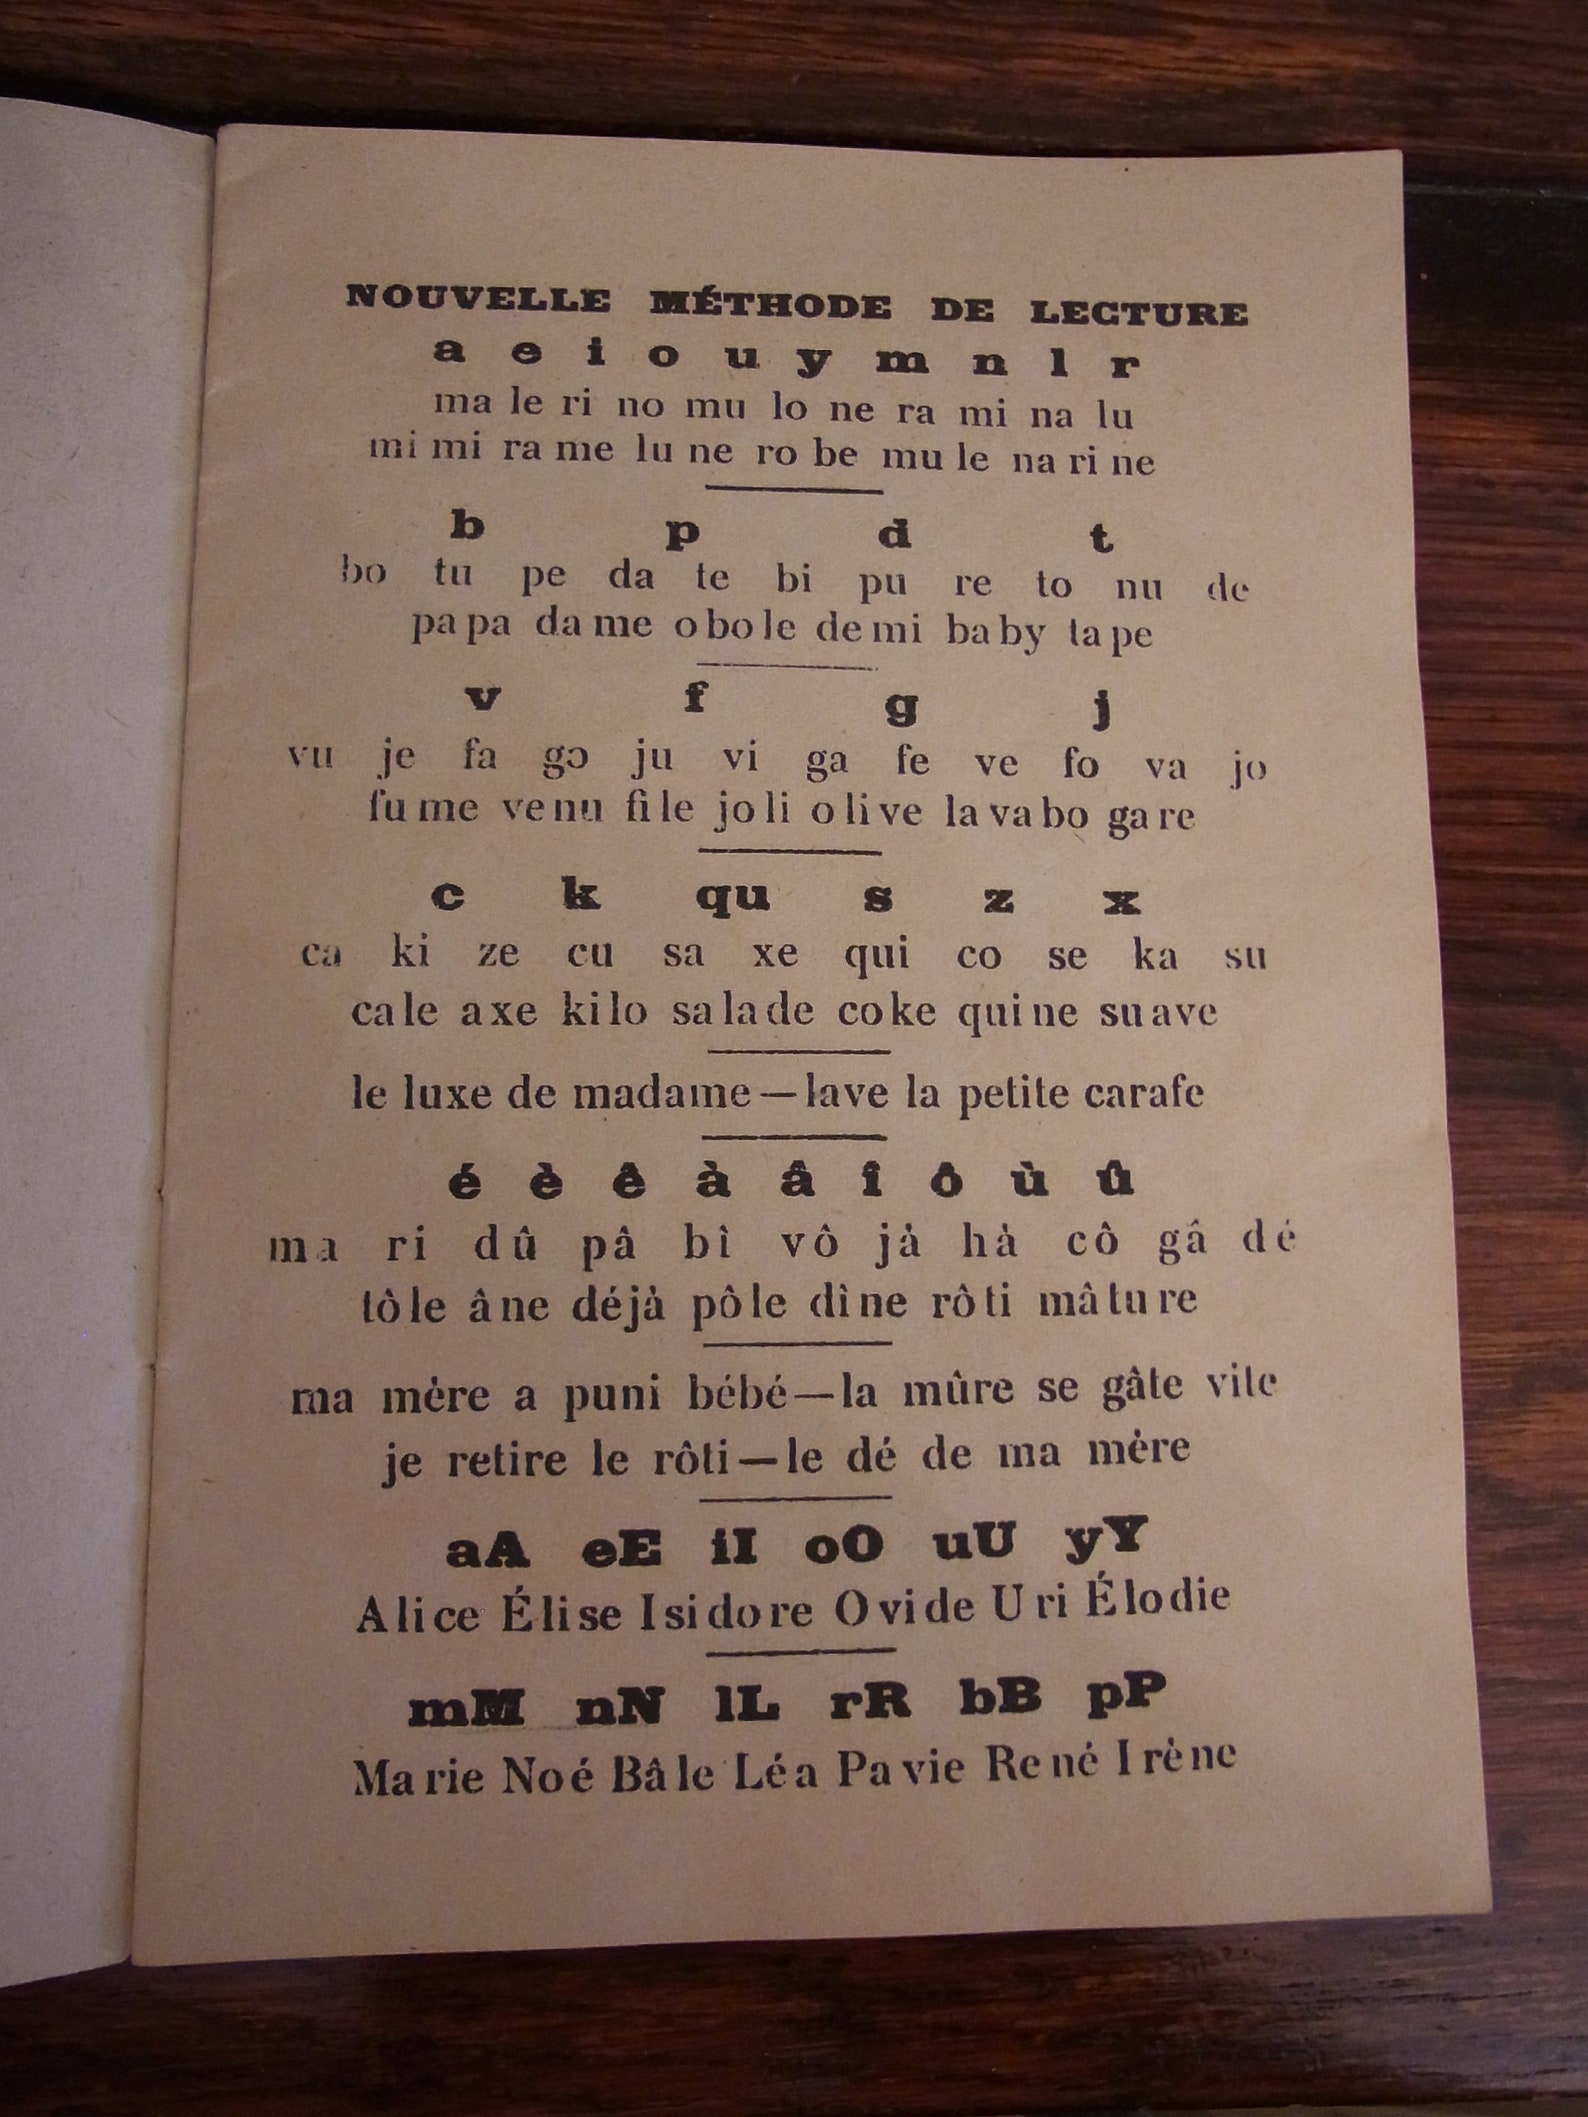 NOUVELLE MÉTHODE DE LECTURE
a e i o u y m n l r
ma le ri no mu lo ne ra mi na lu
mi mi ra me lu ne ro be mu le na ri ne
b p d t
bo tu pe da te bi pu re to nu de
pa pa da me o bo le de mi ba by ta pe
v f g j
vu je fa go ju vi ga fe ve fo va jo
fu me ve nu fi le jo li o li ve la va bo ga re
c k qu s z x
ca ki ze cu sa xe qui co se ka su
ca le a xe ki lo sa la de co ke qui ne su a ve
le luxe de madame — lave la petite carafe
é è ê à â î ô ù û
ma ri dû pâ bî vô jà hà cô gâ dé
tô le â ne dé jà pô le dî ne rô ti mâ tu re
ma mère a puni bébé — la mûre se gâte vite
je retire le rôti — le dé de ma mère
aA eE iI oO uU yY
A li ce É li se I si do re O vi de U ri É lo die
mM nN lL rR bB pP
Ma rie No é Bâ le Lé a Pa vie Re né I rè ne